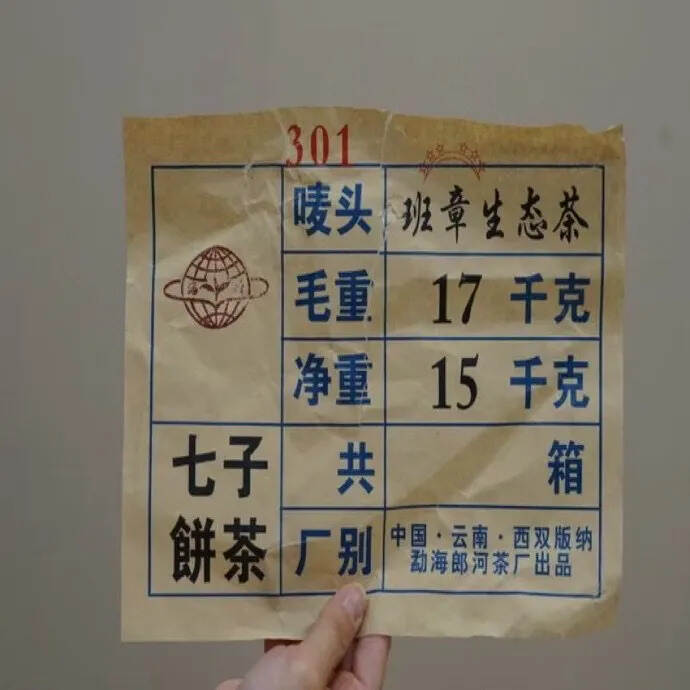 301
唛头 班章生态茶
毛重 17 千克
净重 15 千克
七子
餅茶
共 箱
厂别 中国·云南·西双版纳
勐海郎河茶厂出品